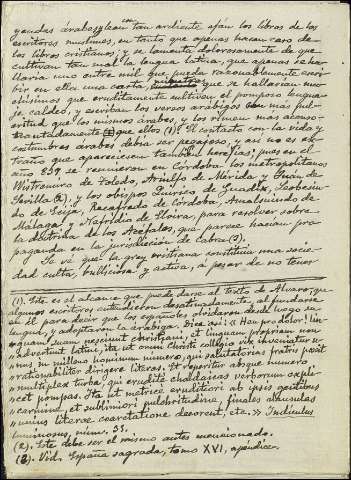 yendas árabes, leían con tan ardiente afán los libros de los
escritores muslimes, en tanto que apenas hacían caso de
los libros cristianos; y se lamenta dolorosamente de que
cultivan tan mal la lengua latina, que apenas se ha-
llaría uno entre mil que pueda razonablemente escri-
bir en ella una carta, mientras que se hallaran mu-
chísimos que eruditamente cultiven el pomposo lengua-
je caldeo, y escriban los versos arábigos con más pul-
critud que los mismos árabes, y los rimen más acompa-
que ellos (1). El contacto con la vida y
costumbres árabes debía ser pegajoso, y así no es ex-
traño que apareciesen también herejías; pues en el
año 839 se reunieron en Córdoba los metropolitanos
Wistremiro de Toledo, Ariulfo de Mérida y Juan de
Sevilla (2), y los obispos Quirico de Guadix, Leobesin-
do de Écija, Recafredo de Córdoba, Amalsuindo de
Málaga y Nifridio de Elvira, para resolver sobre
la doctrina de los Acéfalos, que parece hacían pro-
paganda en la jurisdicción de Cabra (3).
Se vé que la grey cristiana constituía una socie-
dad culta, bulliciosa y activa, a pesar de no tener
(1). Este es el alcance que puede darse al texto de Alvaro, que
algunos escritores entendieron desatinadamente, al fundarse
en él para decir que los españoles olvidaron desde luego su
lengua, y adoptaron la arábiga. Dice así: «Heu pro dolor! lin-
»guam suam nesciunt christiani, et linguam propriam non
»advertunt latini, ita ut omni Christi collegio vix inveniatur u-
»nus in milleno hominum numero, qui salutatorias fratri possit
»rationabiliter dirigere literas. Et reperitur absque numero
»multiplex turba, qui erudite chaldaicas verborum explicet
»et pompas. Ita ut metrice eruditiori ab ipsis gentibus
»carmine et sublimiori pulchritudine, finales clausulas
»unius literae coarctatione decorent, etc.» Indiculus
luminosus, núm. 35.
(2). Este debe ser el mismo antes mencionado.
(3). Vid. España sagrada, tomo XVI, apéndice.